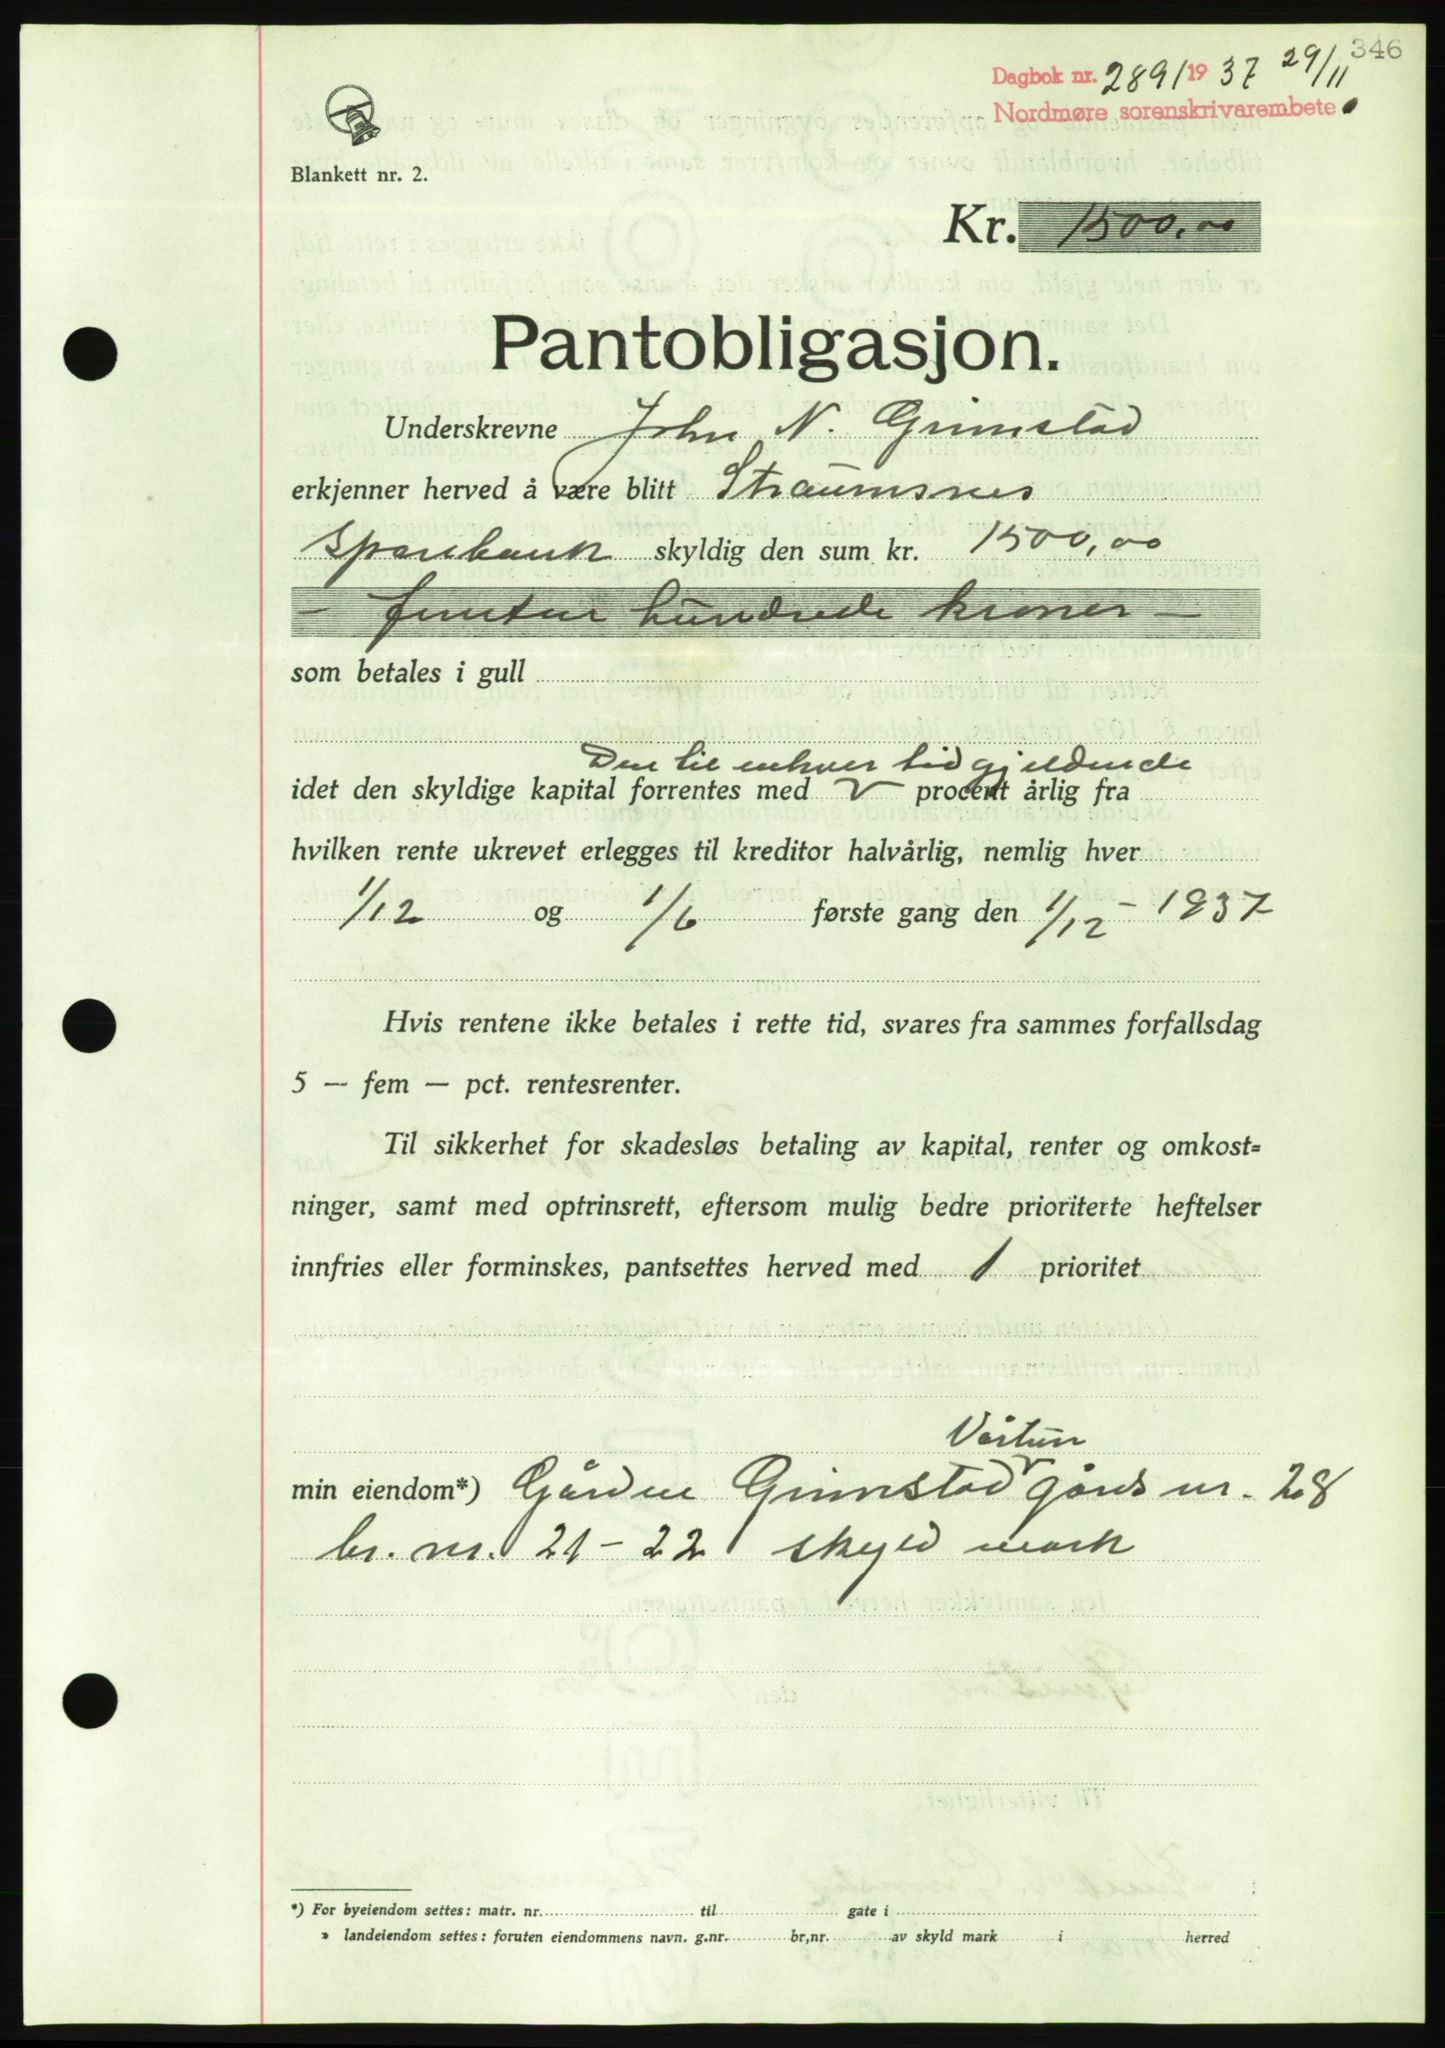 346
Dagbok nr. 2891 1937 29/11
Nordmøre sorenskrivarembete
Blankett nr. 2.
Kr. 1500,00
Pantobligasjon.
Underskrevne John N. Grimstad
erkjenner herved å være blitt Straumsnes
Sparebank skyldig den sum kr. 1500,00
– femten hundrede kroner –
som betales i gull
Den til enhver tid gjeldende
idet den skyldige kapital forrentes med procent årlig fra
hvilken rente ukrevet erlegges til kreditor halvårlig, nemlig hver
1/12 og 1/6 første gang den 1/12 - 1937
Hvis rentene ikke betales i rette tid, svares fra sammes forfallsdag
5 — fem — pct. rentesrenter.
Til sikkerhet for skadesløs betaling av kapital, renter og omkost=
ninger, samt med optrinsrett, eftersom mulig bedre prioriterte heftelser
innfries eller forminskes, pantsettes herved med 1 prioritet
min eiendom*) Gården Grimstad gårds nr. 28
br. nr. 21 - 22 skyld mark
*) For byeiendom settes: matr. nr. til gate i
» landeiendom settes: foruten eiendommens navn. g.nr. br,nr. av skyld mark i herred